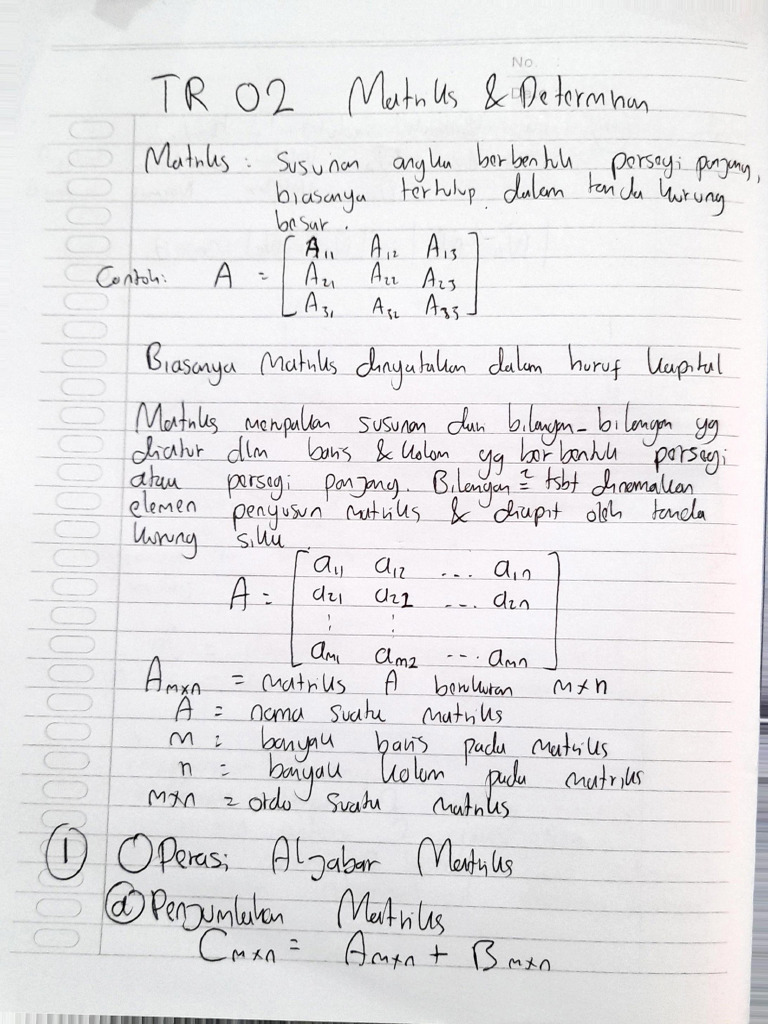 No.
TR 02 Matriks & Determinan
Matriks : Susunan angka berbentuk persegi panjang,
biasanya tertutup dalam tanda kurung
besar.
Contoh: A = [ A11 A12 A13
A21 A22 A23
A31 A32 A33 ]
Biasanya Matriks dinyatakan dalam huruf kapital
Matriks merupakan susunan dari bilangan-bilangan yg
diatur dlm baris & kolom yg berbentuk persegi
atau persegi panjang. Bilangan² tsbt dinamakan
elemen penyusun matriks & diapit oleh tanda
kurung siku
A = [ a11 a12 ... a1n
a21 a22 ... a2n
⋮ ⋮
am1 am2 ... amn ]
Amxn = matriks A berukuran m×n
A = nama suatu matriks
m = banyak baris pada matriks
n = banyak kolom pada matriks
m×n = ordo suatu matriks
① Operasi Aljabar Matriks
ⓐ Penjumlahan Matriks
Cm×n = Am×n + Bm×n